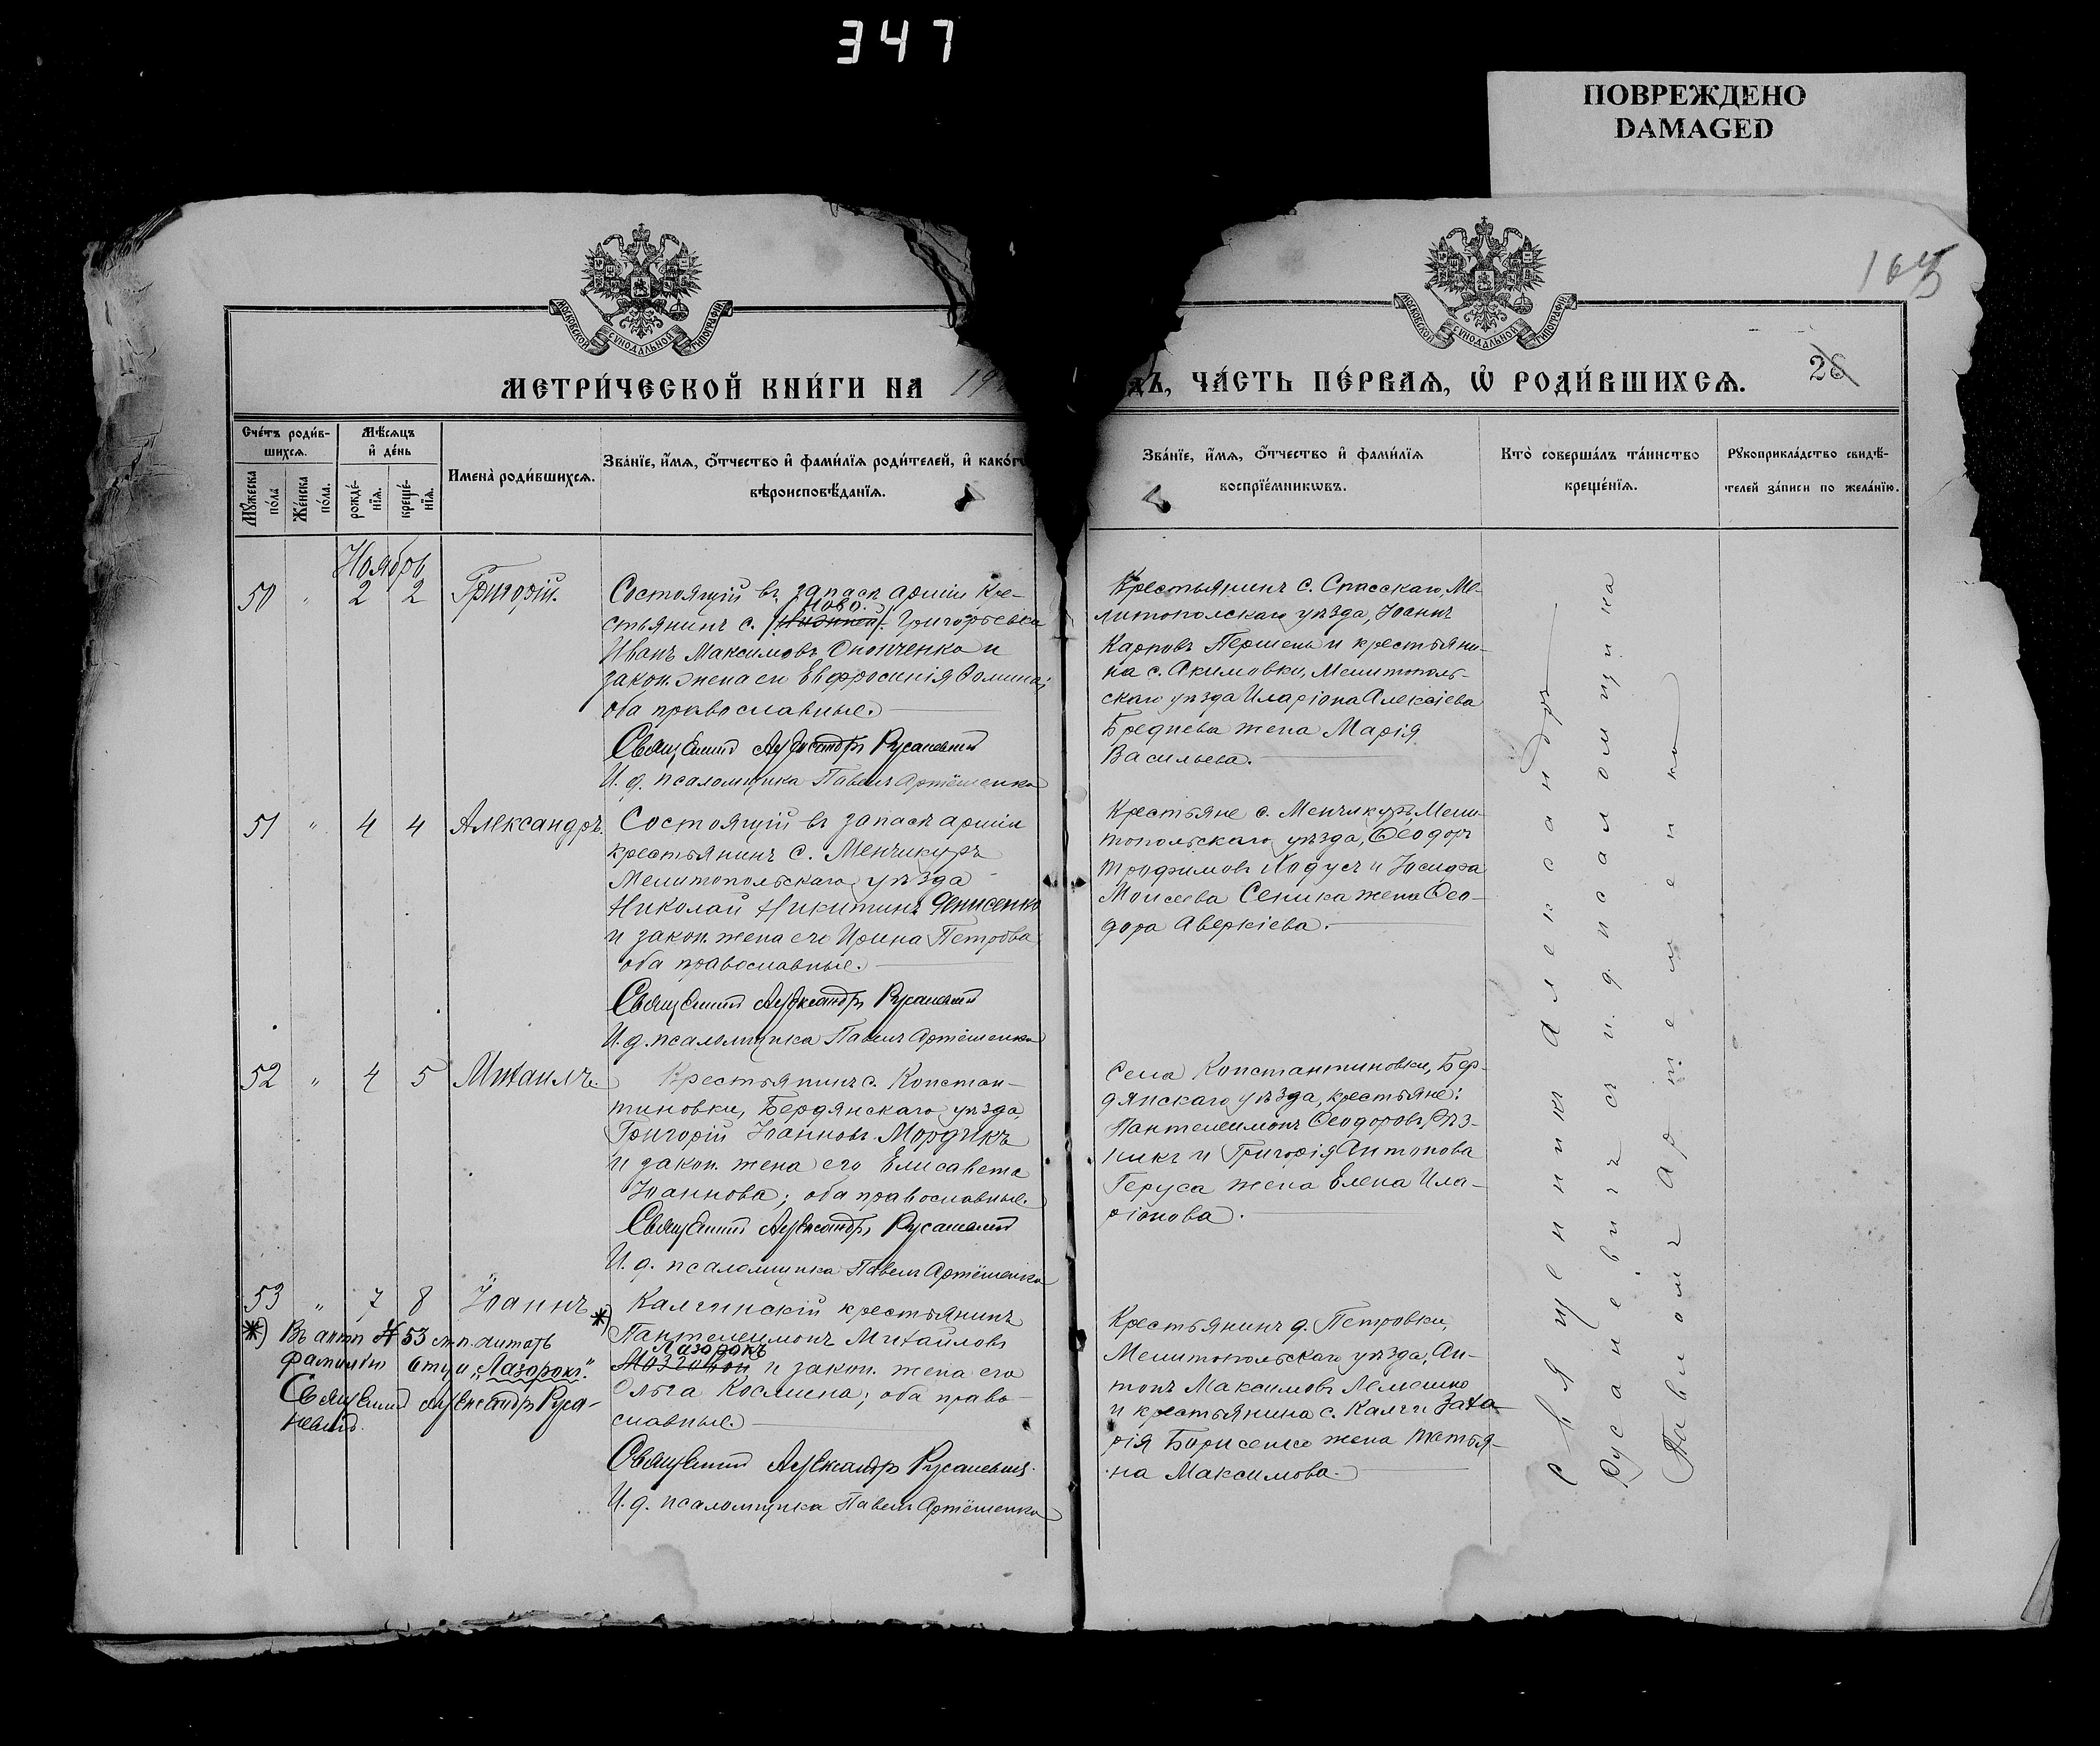 347
ПОВРЕЖДЕНО
DAMAGED
165
28
МОСКОВСКОЙ СѴНОДАЛЬНОЙ ТИПОГРАФІИ
МОСКОВСКОЙ СѴНОДАЛЬНОЙ ТИПОГРАФІИ
МЕТРИ́ЧЕСКОЙ КНИ́ГИ НА 19
дъ, ЧА́СТЬ ПЕ́РВАѦ, Ѡ҆ РОДИ́ВШИХСѦ.
Сче́тъ роди́в-
шихсѧ.
Мꙋ́жеска по́ла
Же́нска по́ла.
Мѣ́сѧцъ
и҆ де́нь
рожде́-
нїѧ.
креще́-
нїѧ.
Имена̀ роди́вшихсѧ.
Зва́нїе, и҆́мѧ, ѻ҆́тчество и҆ фами́лїѧ роди́телей, и҆ како́гѡ
вѣроисповѣ́данїѧ.
Зва́нїе, и҆́мѧ, ѻ҆́тчество и҆ фами́лїѧ
воспрїе́мникѡвъ.
Кто̀ соверша́лъ та́инство
креще́нїѧ.
Рꙋкоприкла́дство свидѣ́-
телей за́писи по жела́нїю.
Ноябрь
50 " 2 2 Григорій.
Состоящій въ запасѣ арміи кре-
Ново.
стьянинъ с. Григорьевки
Иванъ Максимовъ Онопченко и
закон. жена его Евфросинія Фомина;
оба православные.
Священникъ Александръ Русаневичъ
И. д. псаломщика Павелъ Артёменко
Крестьянинъ с. Спасскаго, Ме-
литопольскаго уѣзда, Іоаннъ
Карповъ Першень и крестьяни-
на с. Акимовки, Мелитополь-
скаго уѣзда Иларіона Алексіева
Бреднева жена Марія
Васильева.
51 " 4 4 Александръ.
Состоящій въ запасѣ арміи
крестьянинъ с. Менчикуръ
Мелитопольскаго уѣзда
Николай Никитинъ Денисенко
и закон. жена его Ирина Петрова
оба православные.
Священникъ Александръ Русаневичъ
И. д. псаломщика Павелъ Артёменко
Крестьяне с. Менчикуръ, Мели-
топольскаго уѣзда, Ѳеодоръ
Трофимовъ Ходусъ и Іосифа
Моисеева Сеника жена Ѳео-
дора Аверкіева.
52 " 4 5 Михаилъ.
Крестьянинъ с. Констан-
тиновки, Бердянскаго уѣзда,
Григорій Іоанновъ Мордикъ
и закон. жена его Елисавета
Іоаннова; оба православные.
Священникъ Александръ Русаневичъ
И. д. псаломщика Павелъ Артёменко
Села Константиновки, Бер-
дянскаго уѣзда, крестьяне:
Пантелеимонъ Ѳеодоровъ Рѣз-
никъ и Григорія Антонова
Геруса жена Елена Ила-
ріонова.
53 " 7 8 Іоаннъ.
*) Въ актѣ № 53 сл. п. читать
фамилію отца „Лазорокъ".
Священникъ Александръ Руса-
невичъ.
*) Калгинскій крестьянинъ
Пантелеимонъ Михайловъ
Лазорокъ
Мозговой и закон. жена его
Ольга Космина; оба право-
славные.
Священникъ Александръ Русаневичъ.
И. д. псаломщика Павелъ Артёменко
Крестьянинъ д. Петровки,
Мелитопольскаго уѣзда, Ан-
тонъ Максимовъ Лемешко
и крестьянина с. Калги Заха-
рія Борисенко жена Татья-
на Максимова.
Священникъ Александръ
Русаневичъ съ и. д. псаломщика
Павломъ Артеменко